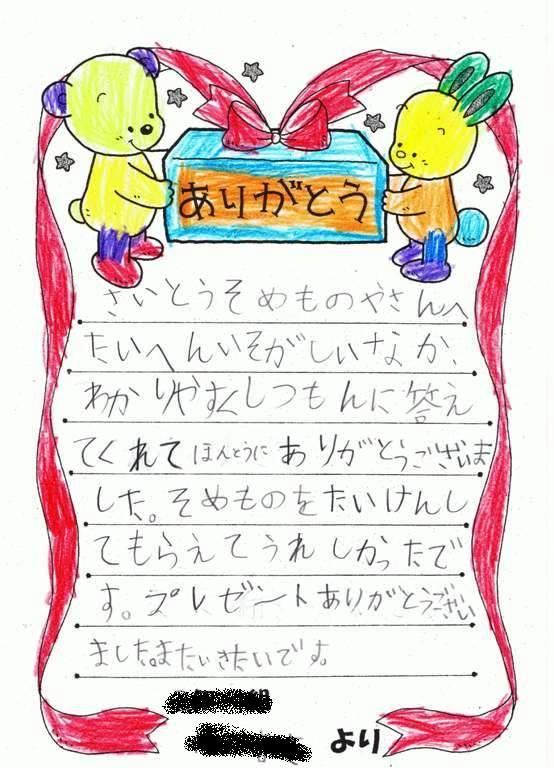 ありがとう
さいとうそめものやさんへ
たいへんいそがしいなか、
わかりやすくしつもんに答え
てくれてほんとうにありがとうございま
した。そめものをたいけんし
てもらえてうれしかったで
す。プレゼントありがとうござい
ました。またいきたいです。
より